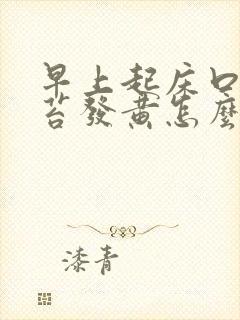 早上起床口
苔發黃怎麼
漆青